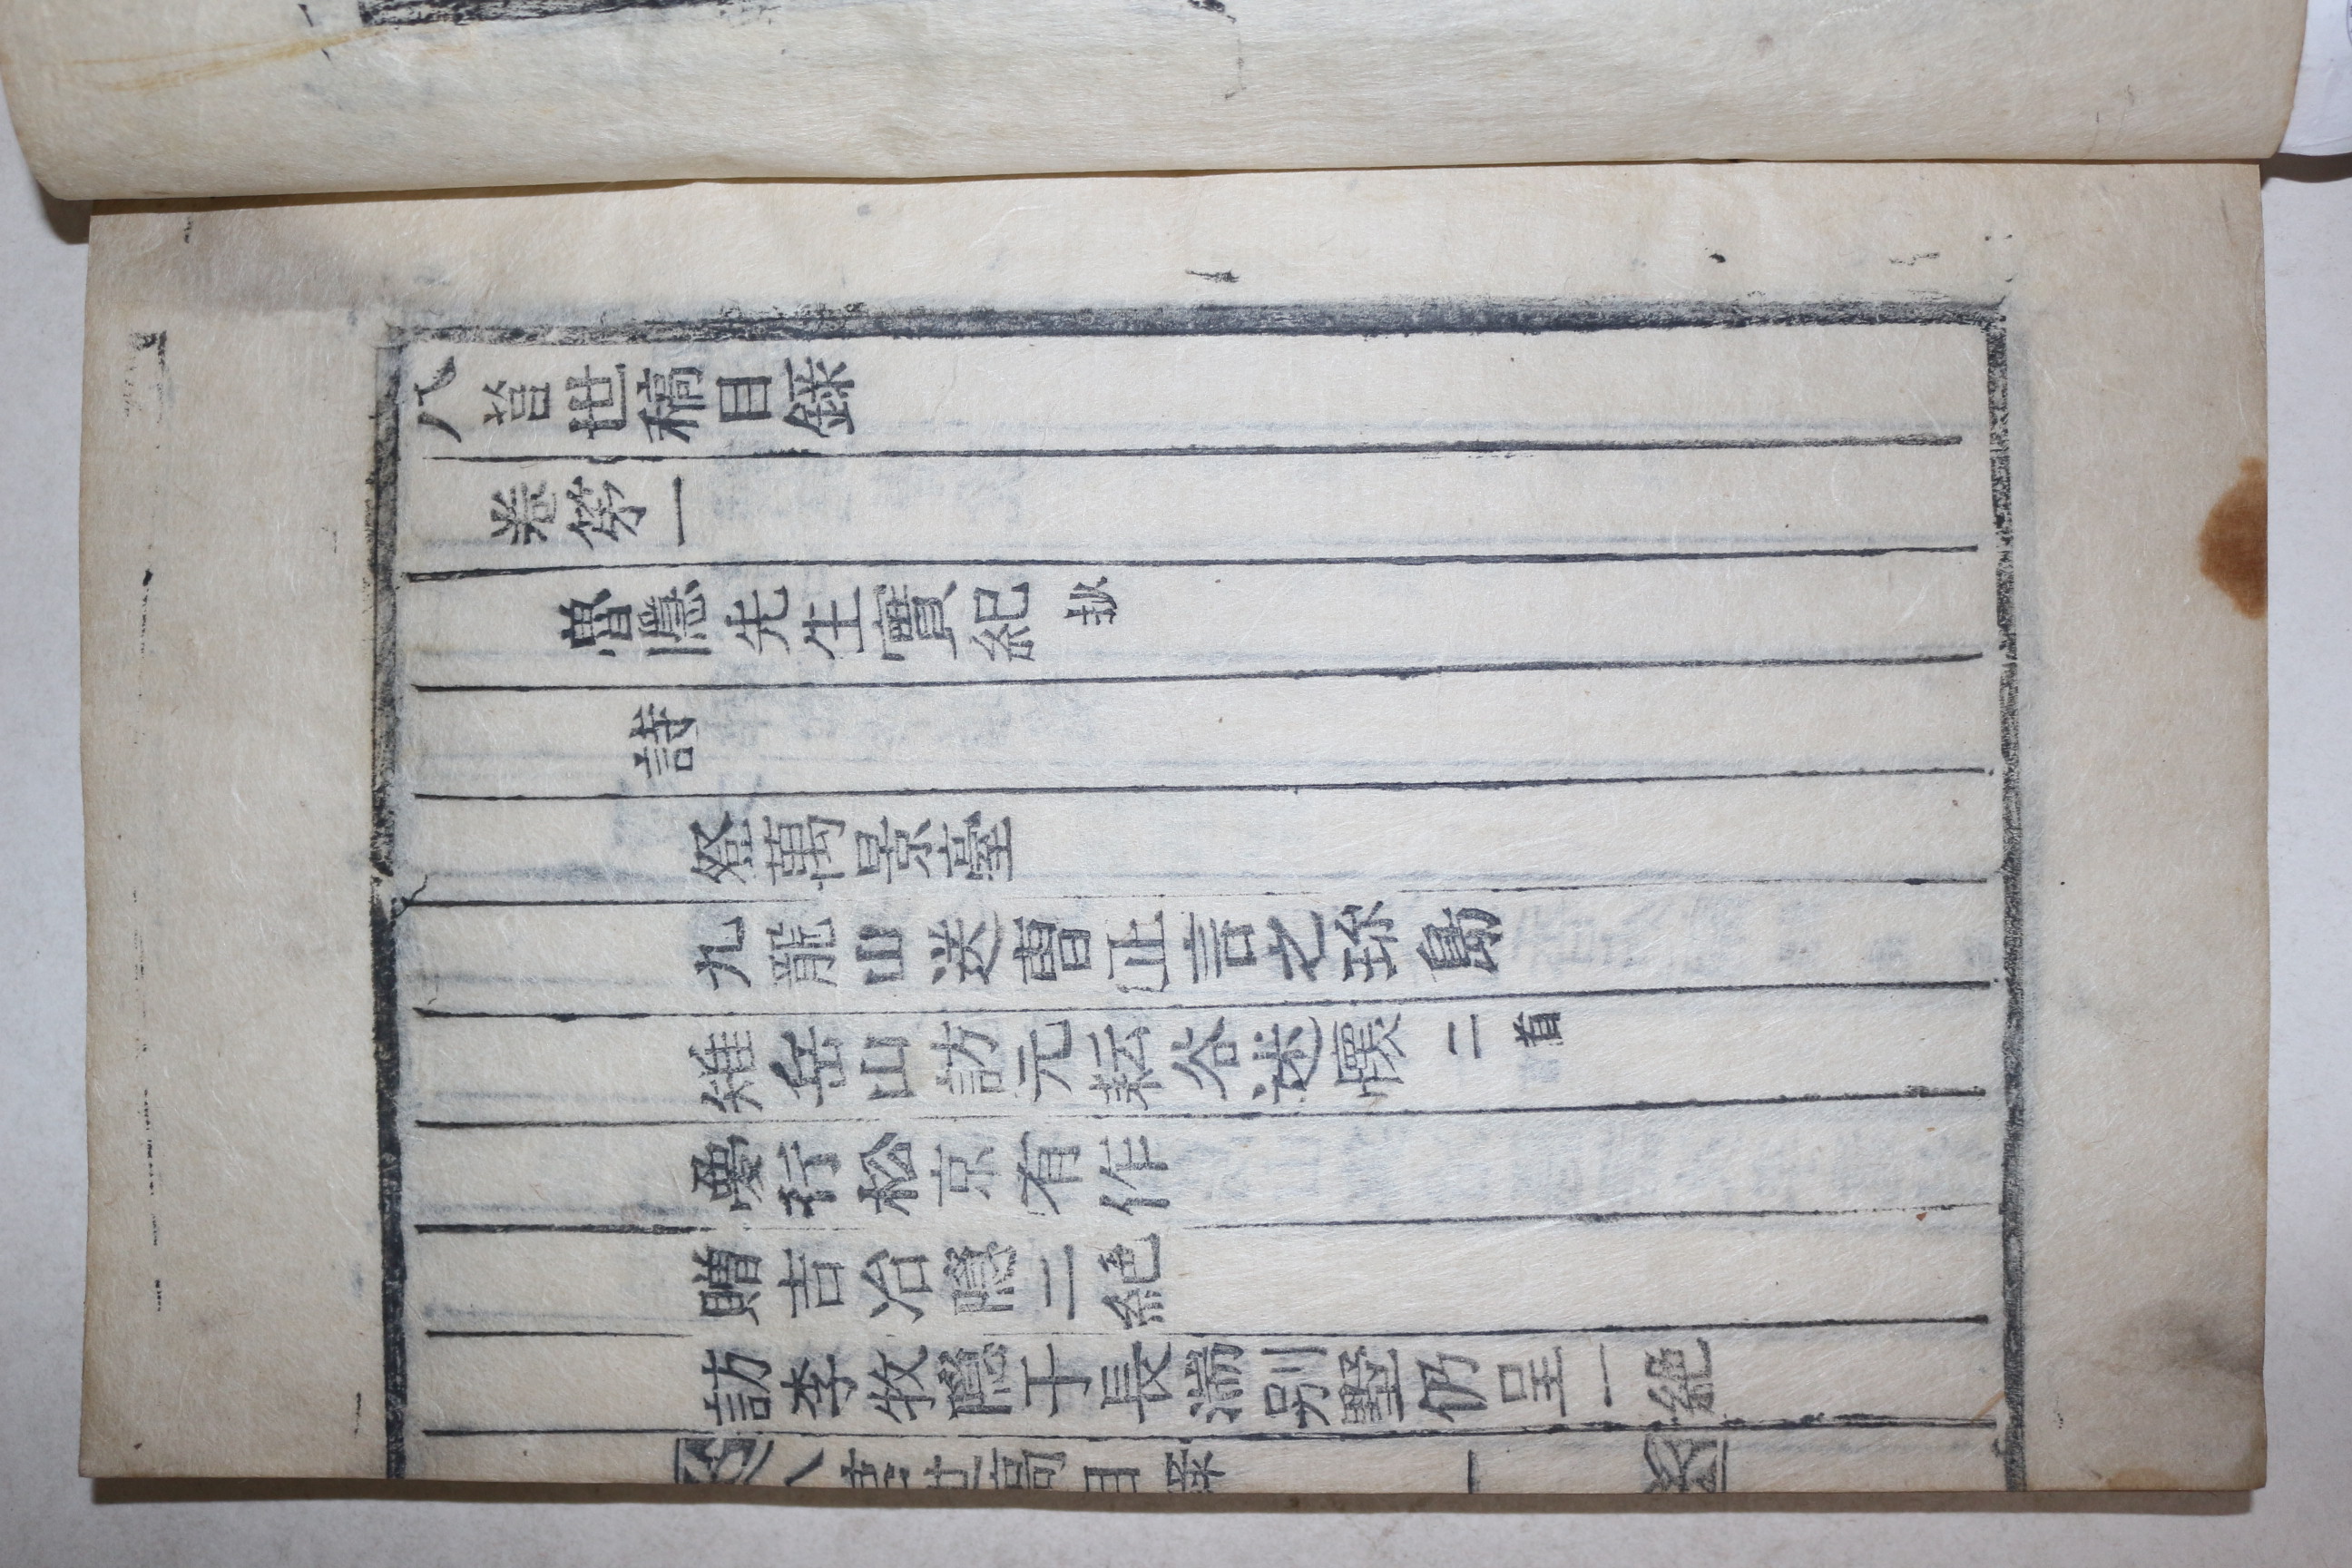 八莒世稿目錄
卷第一
隱先生實紀 抄
詩
登萬景臺
九龍山送曺正言之珍島
雉岳山訪元耘谷述懷 二首
行松京有作
贈吉冶隱二絶
訪李牧隱于長湍別墅仍呈一絶
八莒世稿目錄 一